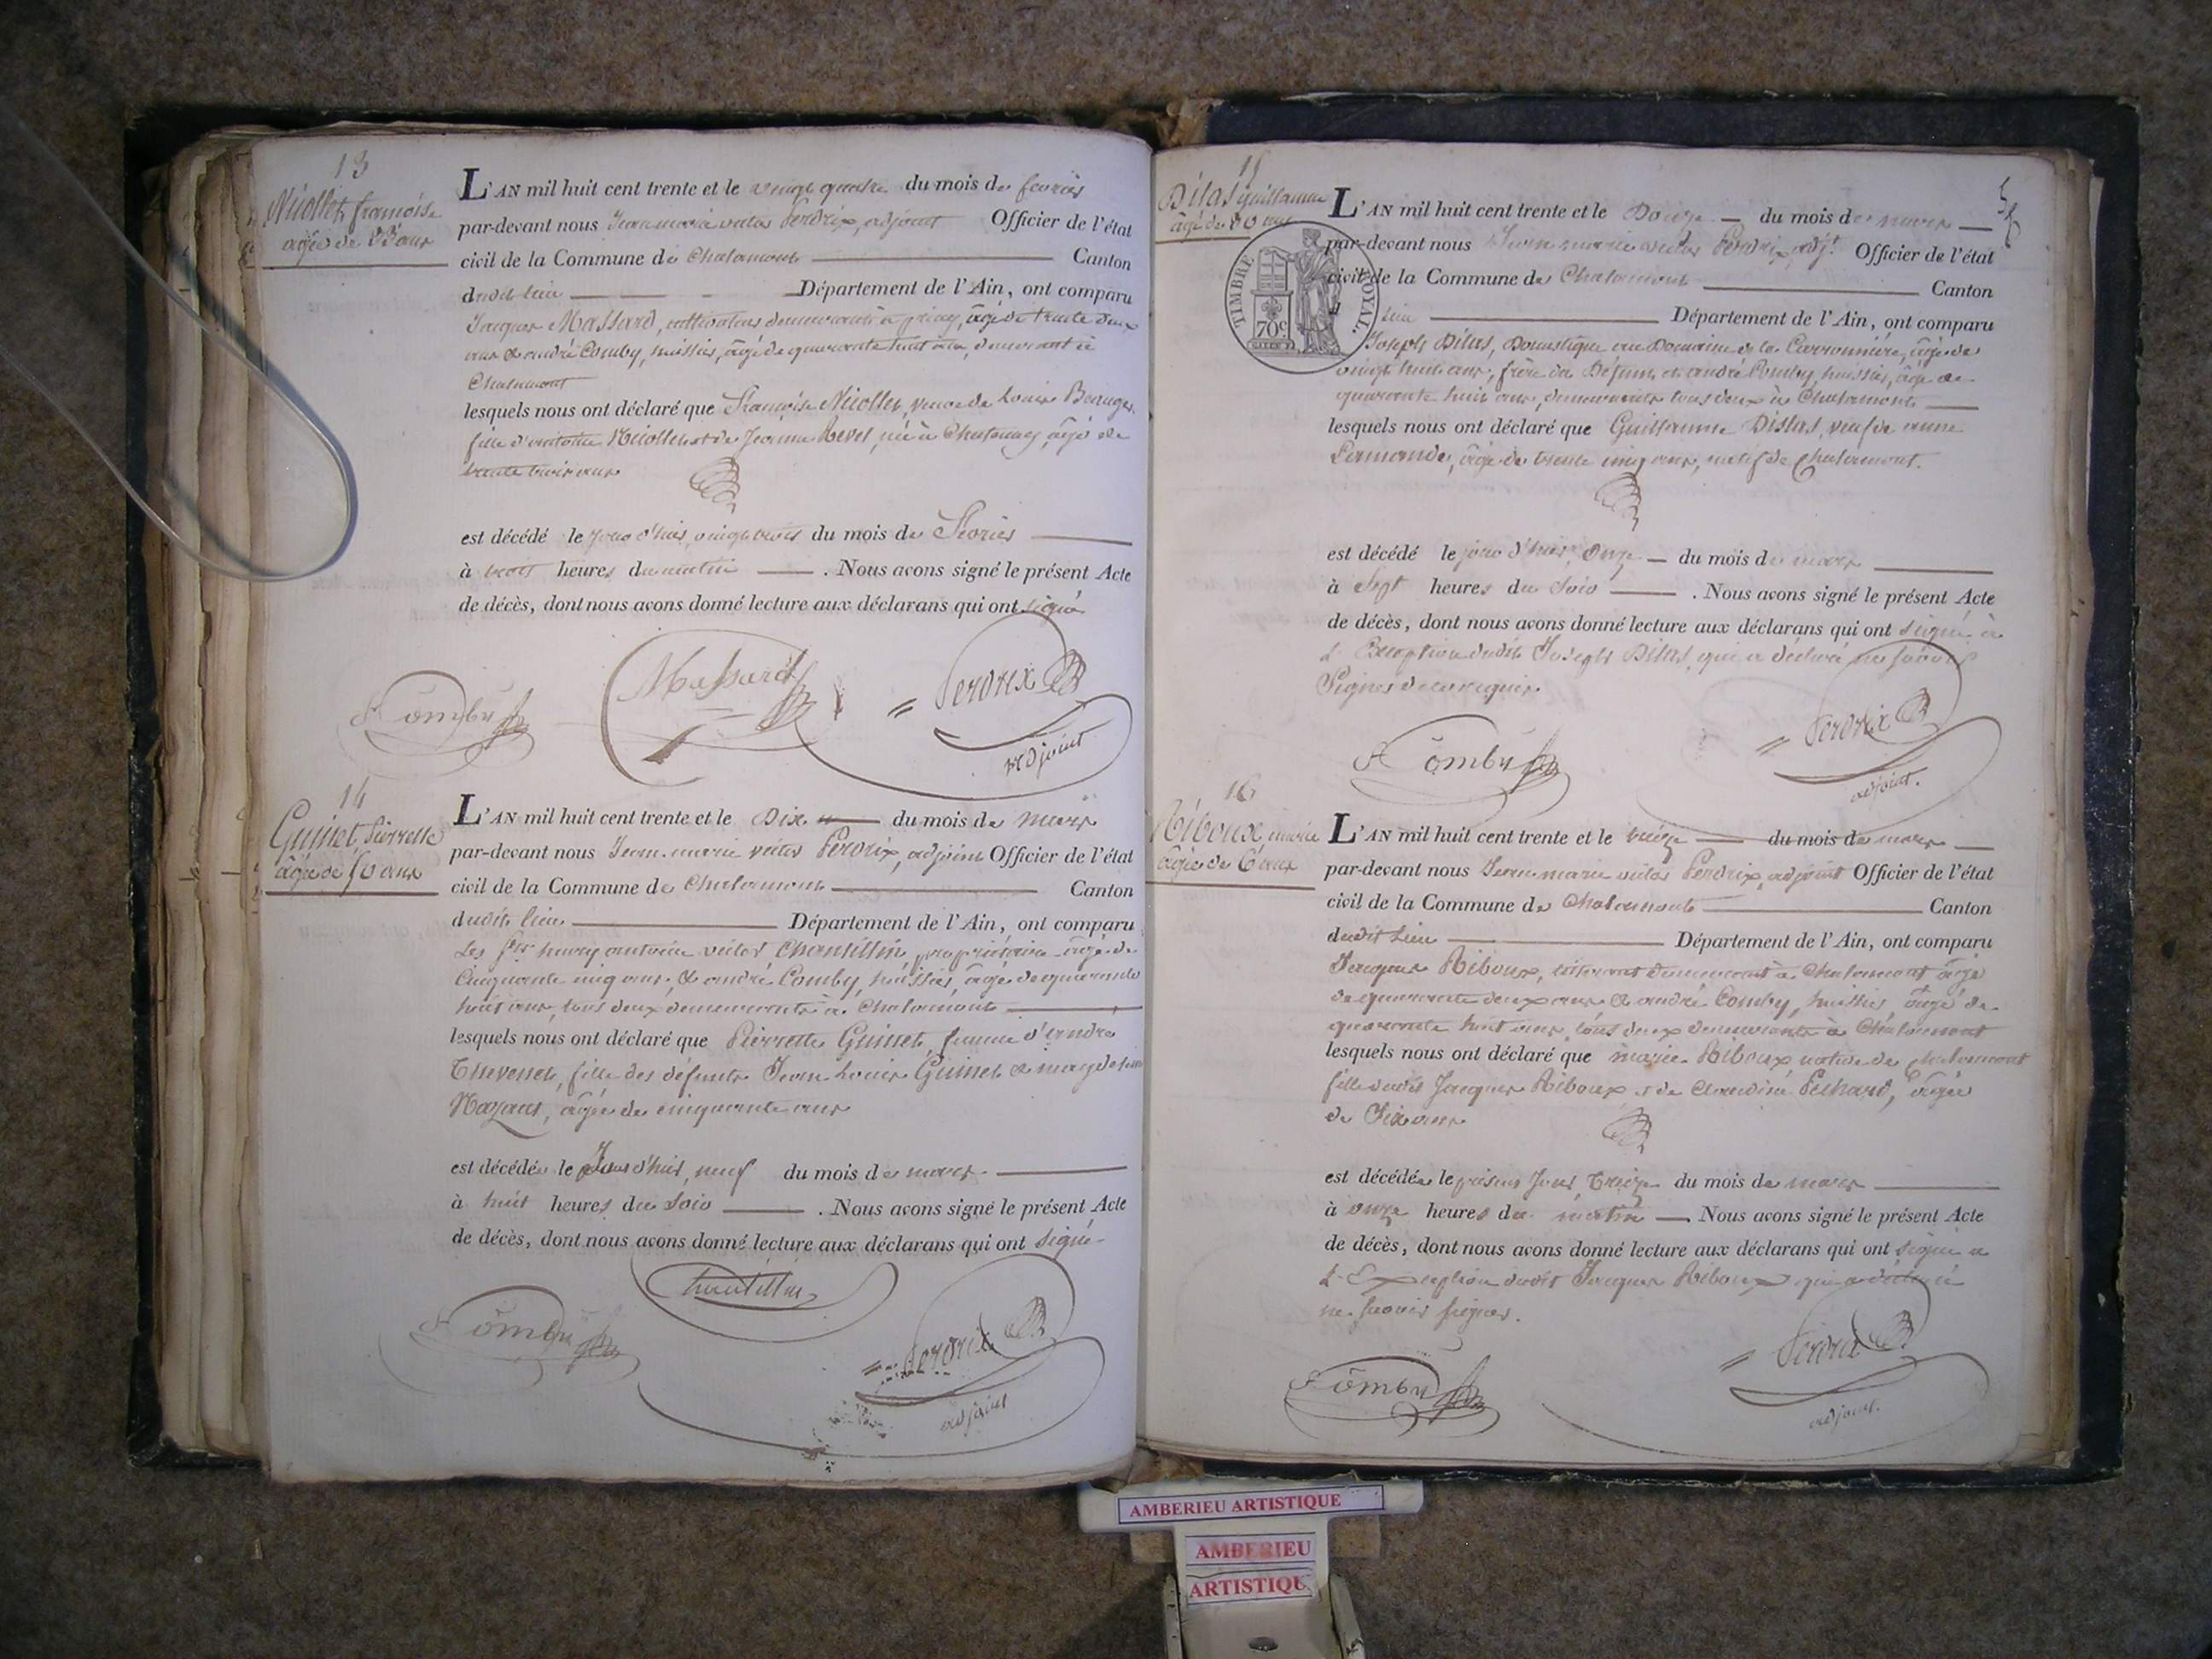 13
Niollet françoise
âgée de 33 ans
L'AN mil huit cent trente et le vingt quatre du mois de fevrier
par-devant nous Jean marie victor Perdrix, adjoint Officier de l'état
civil de la Commune de Chalamont Canton
dudit lieu Département de l'Ain, ont comparu
Jacques Massard, cultivateur demeurant à âgé de trente deux
ans & andré Comby, huissier, âgé de quarante huit ans, demeurant à
Chalamont
lesquels nous ont déclaré que Françoise Niollet, veuve de Louis
fille d'antoine Niollet et de Jeanne Revel, née à Chatenay, âgé de
trente trois ans
est décédé le jour d'hier, vingt trois du mois de Fevrier
à trois heures du matin . Nous avons signé le présent Acte
de décès, dont nous avons donné lecture aux déclarans qui ont signé
A Comby
Massard
Perdrix
adjoint
14
Guinet, Pierrette
âgée de 50 ans
L'AN mil huit cent trente et le Dix du mois de mars
par-devant nous Jean-marie victor Perdrix, adjoint Officier de l'état
civil de la Commune de Chalamont Canton
dudit lieu Département de l'Ain, ont comparu
Les Srs antoine victor Chantillin, propriétaire âgé de
Cinquante cinq ans, & andré Comby, huissier, âgé de quarante
huit ans, tous deux demeurants à Chalamont
lesquels nous ont déclaré que Pierrette Guinet, femme d'andré
Thevenet, fille des défunts Jean Louis Guinet &
âgée de cinquante ans
est décédée le Jour d'hier, neuf du mois de mars
à huit heures du Soir . Nous avons signé le présent Acte
de décès, dont nous avons donné lecture aux déclarans qui ont signé
Chantillin
A Comby
Perdrix
adjoint
15
Dilas guillaume
L'AN mil huit cent trente et le Douze du mois de mars
par-devant nous Jean marie victor Perdrix, adjt Officier de l'état
civil de la Commune de Chalamont Canton
lieu Département de l'Ain, ont comparu
TIMBRE ROYAL.
70c
Joseph Dilas, Domestique au Domaine de la Carronnière, âgé de
vingt huit ans, frère du Défunt et andré Comby, huissier, âgé de
quarante huit ans, demeurants tous deux à Chalamont
lesquels nous ont déclaré que Guillaume Dislas, veuf de anne
âgé de trente cinq ans, natif de Chalamont.
est décédé le jour d'hier, Onze du mois de mars
à Sept heures du Soir . Nous avons signé le présent Acte
de décès, dont nous avons donné lecture aux déclarans qui ont signé à
l'Exception dudit Joseph Dilas, qui a déclaré ne savoir
Signer de ce requis.
A Comby
Perdrix
adjoint.
16
Riboux marie
âgée de 6 ans
L'AN mil huit cent trente et le treize du mois de mars
par-devant nous Jean marie victor Perdrix, adjoint Officier de l'état
civil de la Commune de Chalamont Canton
dudit lieu Département de l'Ain, ont comparu
Jacques Riboux, demeurant à Chalamont âgé
de quarante deux ans & andré Comby, huissier âgé de
quarante huit ans, tous deux demeurants à Chalamont
lesquels nous ont déclaré que marie Riboux native de Chalamont
fille dudit Jacques Riboux & de Claudine Pechard, âgée
de Six ans
est décédée le présent Jour, Treize du mois de mars
à onze heures du matin . Nous avons signé le présent Acte
de décès, dont nous avons donné lecture aux déclarans qui ont signé a
l'Exception dudit Jacques Riboux qui a déclaré
ne savoir signer.
A Comby
Perdrix
adjoint.
AMBERIEU ARTISTIQUE
AMBERIEU
ARTISTIQU